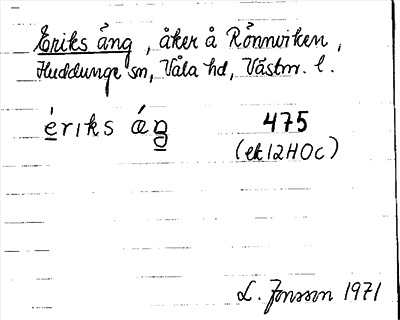 Eriks äng, åker å Rönnviken,
Huddunge sn, Våla hd, Västm. l.
ériks áŋ 475
(ek 12H0c)
L. Jonsson 1971